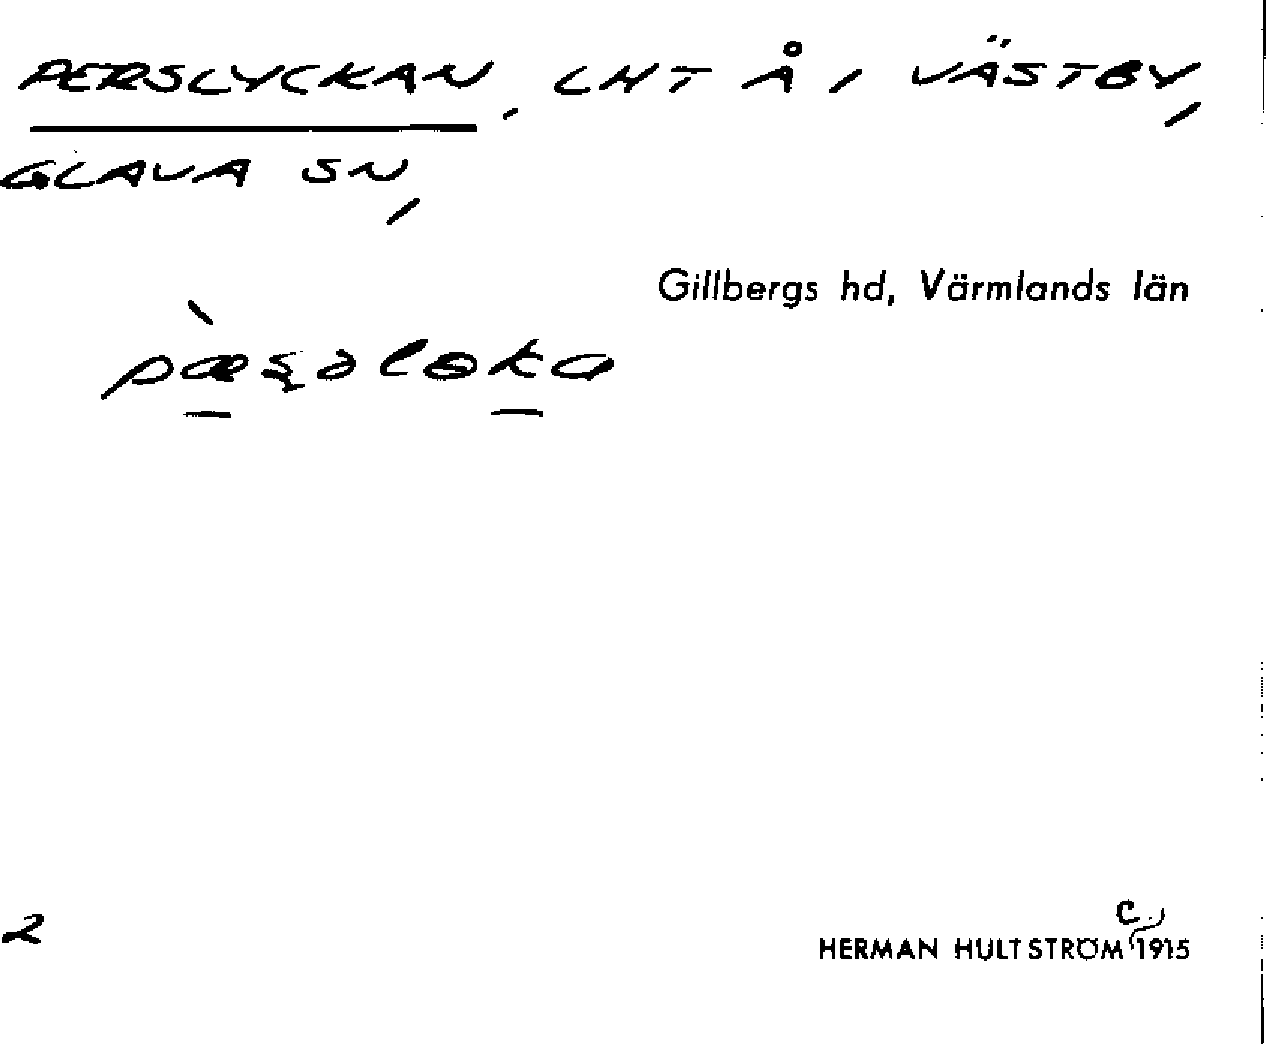 PERSLYCKAN, LHT Å I VÄSTBY,
GLAVA SN,
Gillbergs hd, Värmlands län
2
C
HERMAN HULTSTRÖM 1915